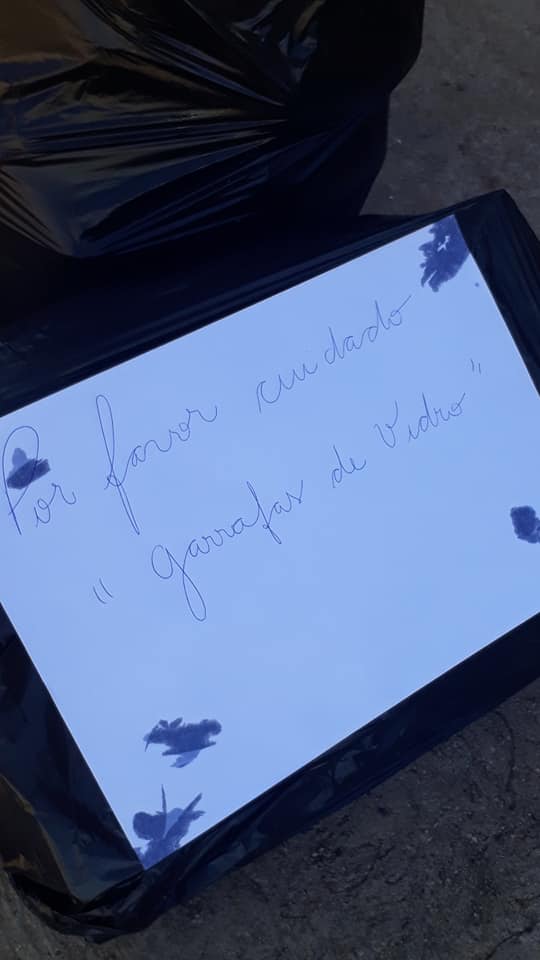 Por favor cuidado
" garrafas de Vidro "